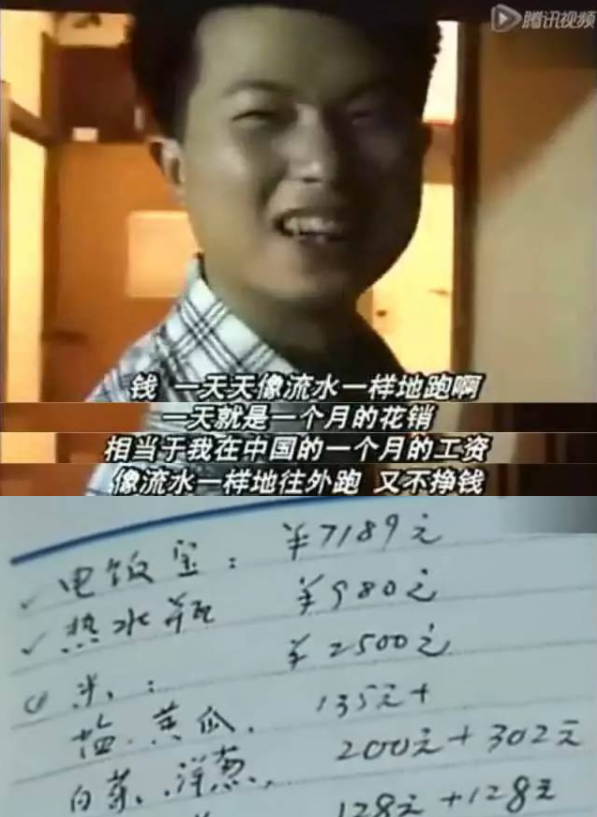 腾讯视频
钱 一天天像流水一样地跑啊
一天就是一个月的花销
相当于我在中国的一个月的工资
像流水一样地往外跑 又不挣钱
✓ 电饭宝: ¥7189元
✓ 热水瓶 ¥980元
米: ¥2500元
盐.黄瓜. 135元+
白菜.洋葱. 200元+302元
128元+128元